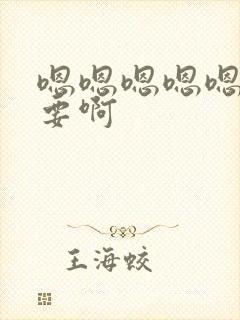 嗯嗯嗯嗯嗯
要啊
王海蛟